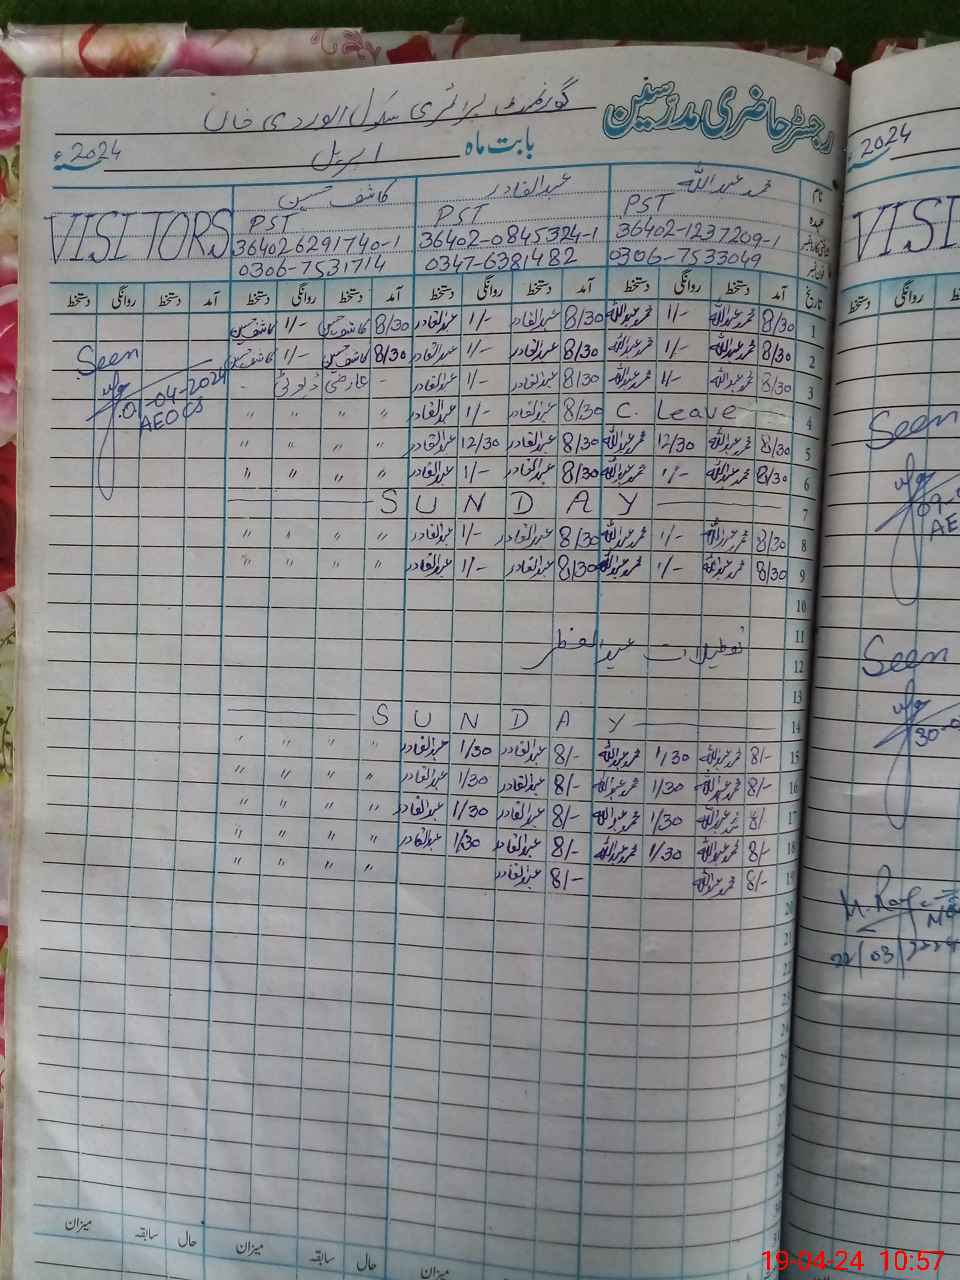 رجسٹر حاضری مدرسین گورنمنٹ پرائمری سکول الوردی خاں
بابت ماہ اپریل 2024ء
نام محمد عبداللہ عبدالقادر کاشف حسین VISITORS
عہدہ PST PST PST
36402-1237209-1 36402-0845324-1 36402-6291740-1
0306-7533049 0347-6381482 0306-7531714
تاریخ آمد دستخط روانگی دستخط آمد دستخط روانگی دستخط آمد دستخط روانگی دستخط آمد دستخط روانگی دستخط
1 8/30 محمد عبداللہ 1/- محمد عبداللہ 8/30 عبدالقادر 1/- عبدالقادر 8/30 کاشف حسین 1/- کاشف حسین
2 8/30 محمد عبداللہ 1/- محمد عبداللہ 8/30 عبدالقادر 1/- عبدالقادر 8/30 کاشف حسین 1/- کاشف حسین Seen
3 8/30 محمد عبداللہ 1/- محمد عبداللہ 8/30 عبدالقادر 1/- عبدالقادر - عارضی ڈیوٹی - 01-04-2024
4 C. Leave 8/30 عبدالقادر 1/- عبدالقادر " " " " AEO
5 8/30 محمد عبداللہ 12/30 محمد عبداللہ 8/30 عبدالقادر 12/30 عبدالقادر " " " "
6 8/30 محمد عبداللہ 1/- محمد عبداللہ 8/30 عبدالقادر 1/- عبدالقادر " " " "
7 SUNDAY
8 8/30 محمد عبداللہ 1/- محمد عبداللہ 8/30 عبدالقادر 1/- عبدالقادر " " " "
9 8/30 محمد عبداللہ 1/- محمد عبداللہ 8/30 عبدالقادر 1/- عبدالقادر " " " "
10
11
تعطیلات عیدالفطر
12
13
14 SUNDAY
15 8/- محمد عبداللہ 1/30 محمد عبداللہ 8/- عبدالقادر 1/30 عبدالقادر " " " "
16 8/- محمد عبداللہ 1/30 محمد عبداللہ 8/- عبدالقادر 1/30 عبدالقادر " " " "
17 8/- محمد عبداللہ 1/30 محمد عبداللہ 8/- عبدالقادر 1/30 عبدالقادر " " " "
18 8/- محمد عبداللہ 1/30 محمد عبداللہ 8/- عبدالقادر 1/30 عبدالقادر " " " "
19 8/- محمد عبداللہ 8/- عبدالقادر " " " "
20
21
22
23
24
25
26
27
حال سابقہ میزان حال سابقہ میزان
میزان
2024ء
VISI
Seen
AE
Seen
30-
22/03/2024
19-04-24 10:57